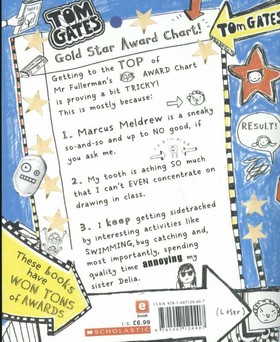 TOM
GATES
Gold Star Award Chart!
TOM GATES
Getting to the TOP of
Mr Fullerman's AWARD Chart
is proving a bit TRICKY!
This is mostly because:
1. Marcus Meldrew is a sneaky
so-and-so and up to NO good, if
you ask me.
RESULT!
2. My tooth is aching SO much
that I can't EVEN concentrate on
drawing in class.
3. I keep getting sidetracked
by interesting activities like
SWIMMING, bug catching and,
most importantly, spending
quality time annoying my
sister Delia.
(Loser)
These books
have
WON TONS
OF AWARDS
e
book
£6.99
SCHOLASTIC